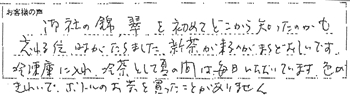 お客様の声
御社の錦、翠を初めてどこから知ったのかも
忘れる位 時がたちました、新茶が来るのがまちどおしいです。
冷凍庫に入れ、冷茶として夏の間は毎日いただいてます 色の
きれいで、ボトルのお茶を買ったことがありません